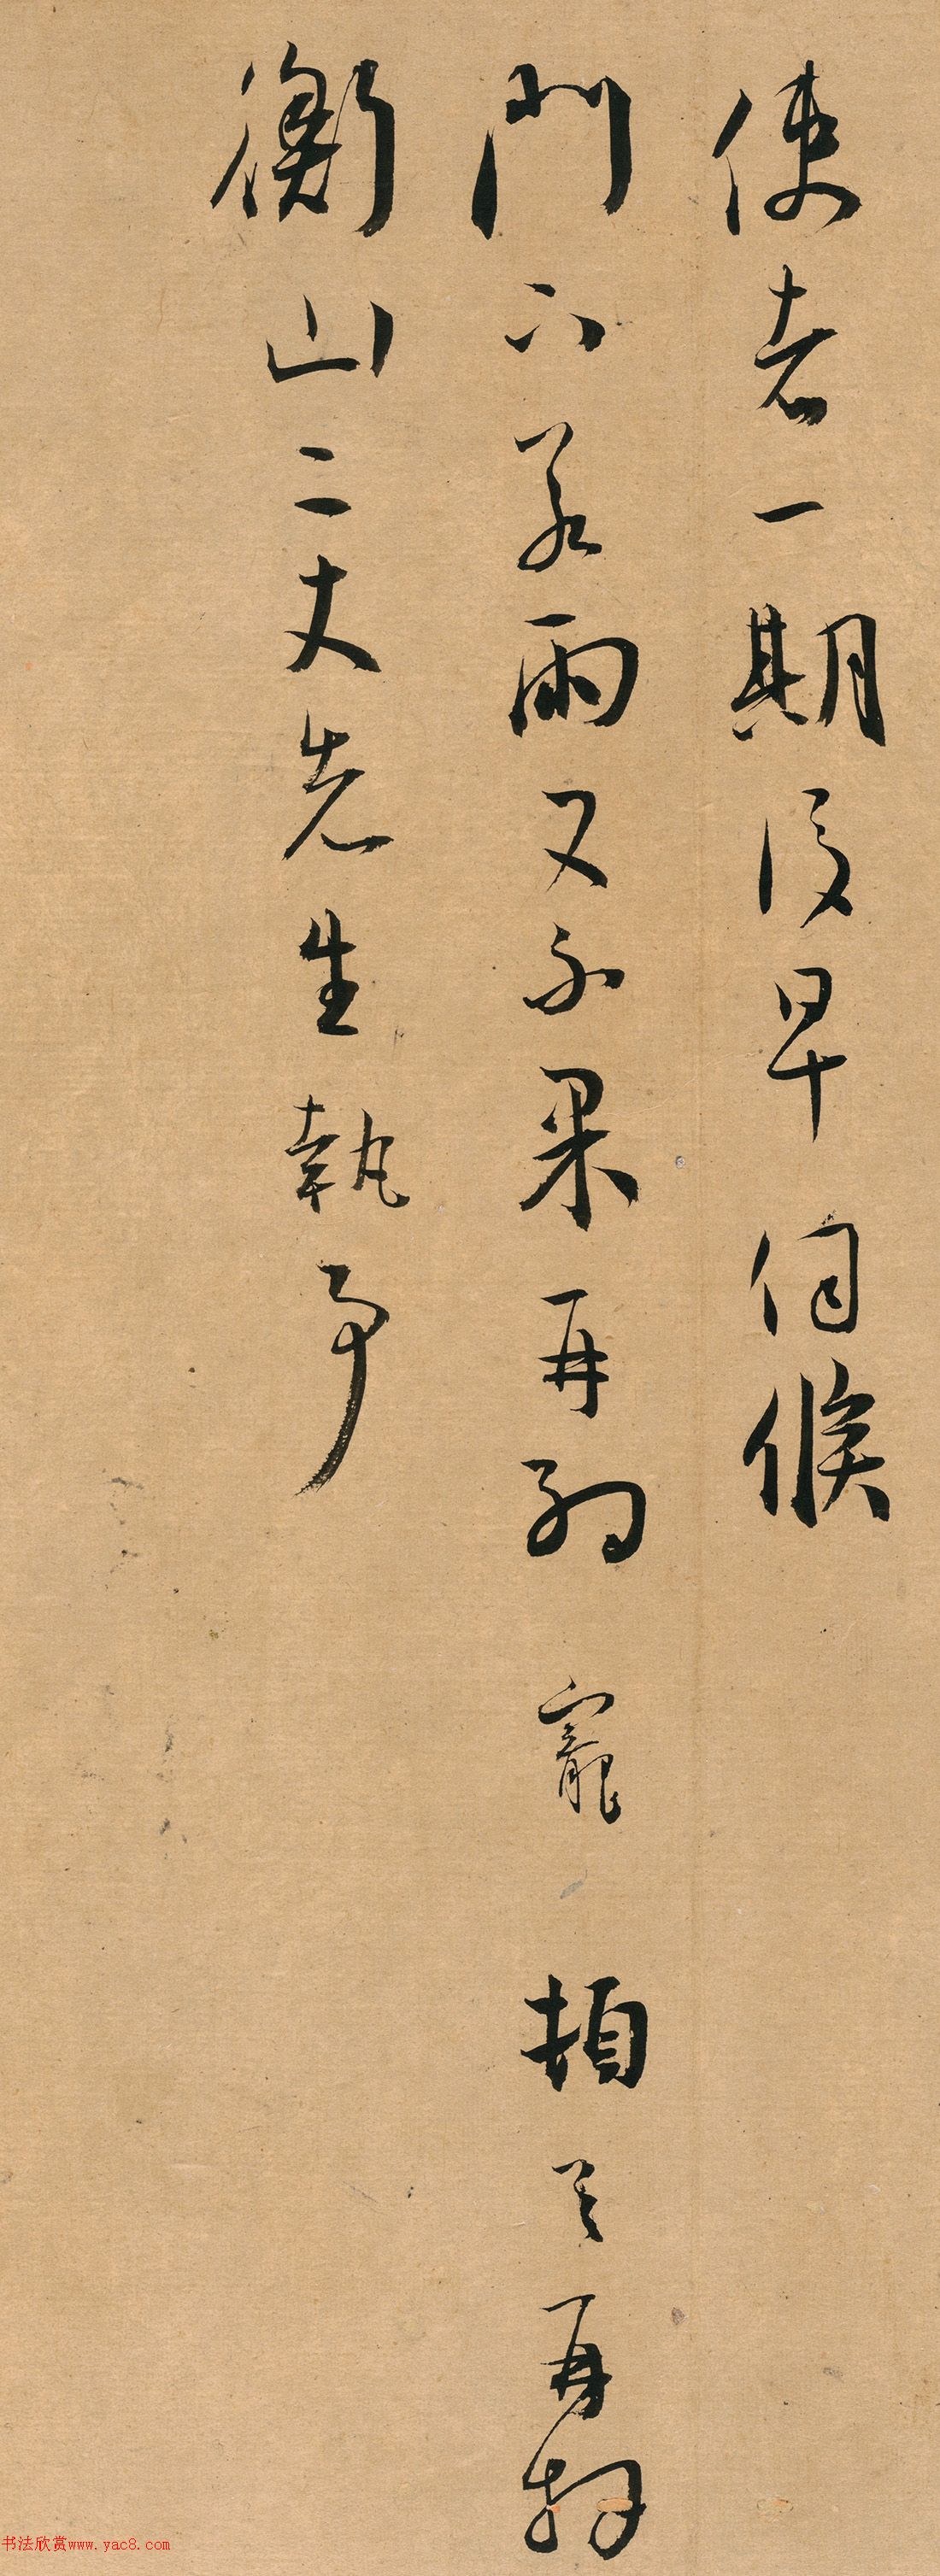 使者一期後早伺候
門下若雨又不果再約寵頓首再拜
衡山二丈先生執事
书法欣赏www.yac8.com